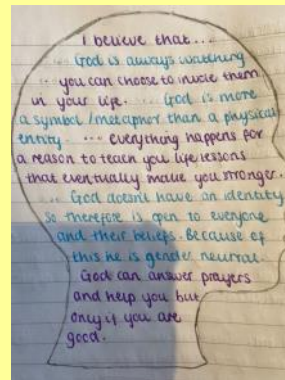 I believe that...
... God is always watching
you can choose to invite them
in your life. ... God is more
a symbol/metaphor than a physical
entity. ... everything happens for
a reason to teach you life lessons
that eventually make you stronger.
... God doesn't have an identity
so therefore is open to everyone
and their beliefs. Because of
this he is gender neutral.
God can answer prayers
and help you but
only if you are
good.